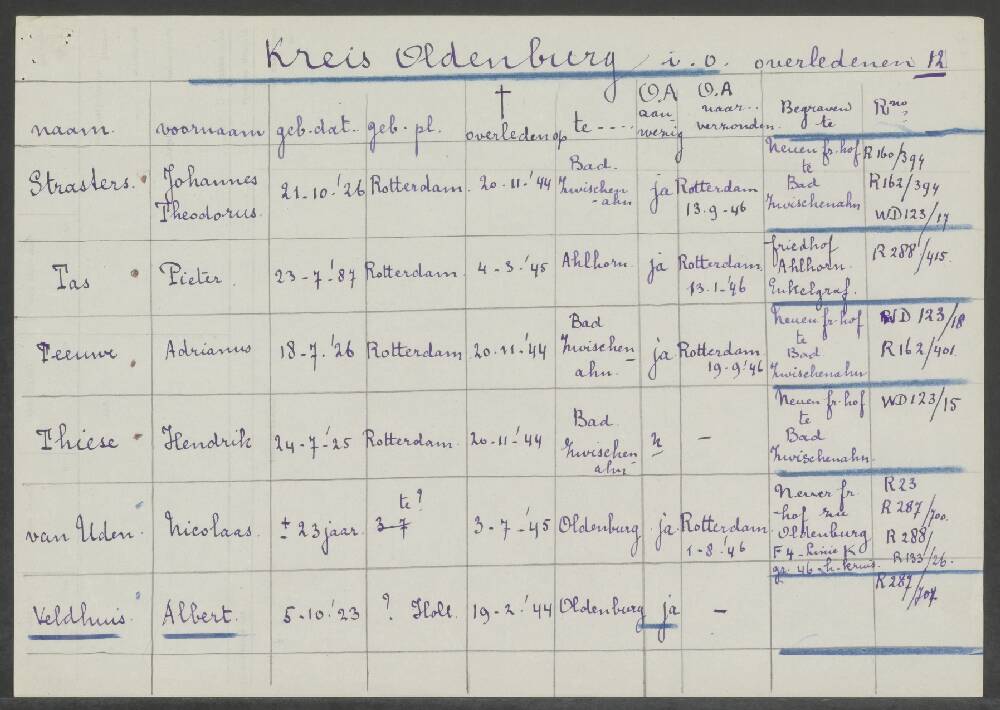 Kreis Oldenburg i.o. overledenen 12
naam. voornaam geb.dat. geb.pl. † overleden op te ---- O.A aan-wezig O.A naar.. verzonden. Begraven te R no?
Strasters. Johannes Theodorus. 21-10-'26 Rotterdam. 20-11-'44 Bad-Zwischen-ahn ja Rotterdam 13-9-46 Neuen fr.hof te Bad Zwischenahn R160/394 R162/394 WD123/17
Tas Pieter. 23-7-'87 Rotterdam. 4-3-'45 Ahlhorn. ja Rotterdam. 13-1-'46 friedhof Ahlhorn. Enkelgraf. R288/415.
Teeuwe Adrianus 18-7-'26 Rotterdam 20-11-'44 Bad Zwischen-ahn. ja Rotterdam 19-9-'46 Neuen fr.hof te Bad Zwischenahn WD 123/18 R162/401
Thiese Hendrik 24-7-'25 Rotterdam. 20-11-'44 Bad. Zwischen ahn n - Neuen fr.hof te Bad Zwischenahn. WD123/15
van Uden. Nicolaas. ± 23 jaar. te? 3-7 3-7-'45 Oldenburg ja Rotterdam 1-8-'46 Neuer fr. hof Oldenburg F4-Linie K gr. 46 R23 R287/700. R288/ R133/26.
Veldhuis. Albert. 5-10-'23 ? Holl. 19-2-'44 Oldenburg ja - R287/707